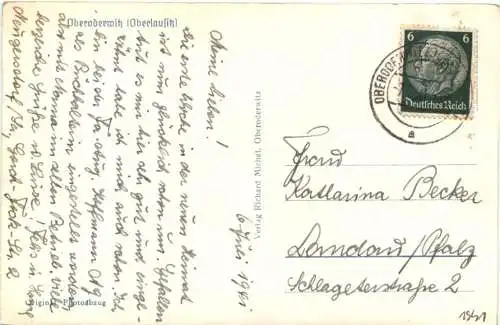 Oberoderwitz (Oberlausitz)
Meine Lieben!
Die erste Woche in der neuen Heimat
ist nun glücklich vorbei u. gefallen
tut es mir hier sehr gut und einge-
lebt habe ich mich auch schon. Ich
bin bei der Fa. Aug. Hoffmann AG
als Buchhalterin eingestellt worden
also wie Mama im alten Betrieb. Viele
herzliche Grüße
Neugersdorf
6 Juli 1941
Verlag Richard Michel, Oberoderwitz
Original-Photoabzug
6
Deutsches Reich
OBERODERWITZ
a
Frau
Katharina Becker
Landau/Pfalz
Schlageterstraße 2
1941